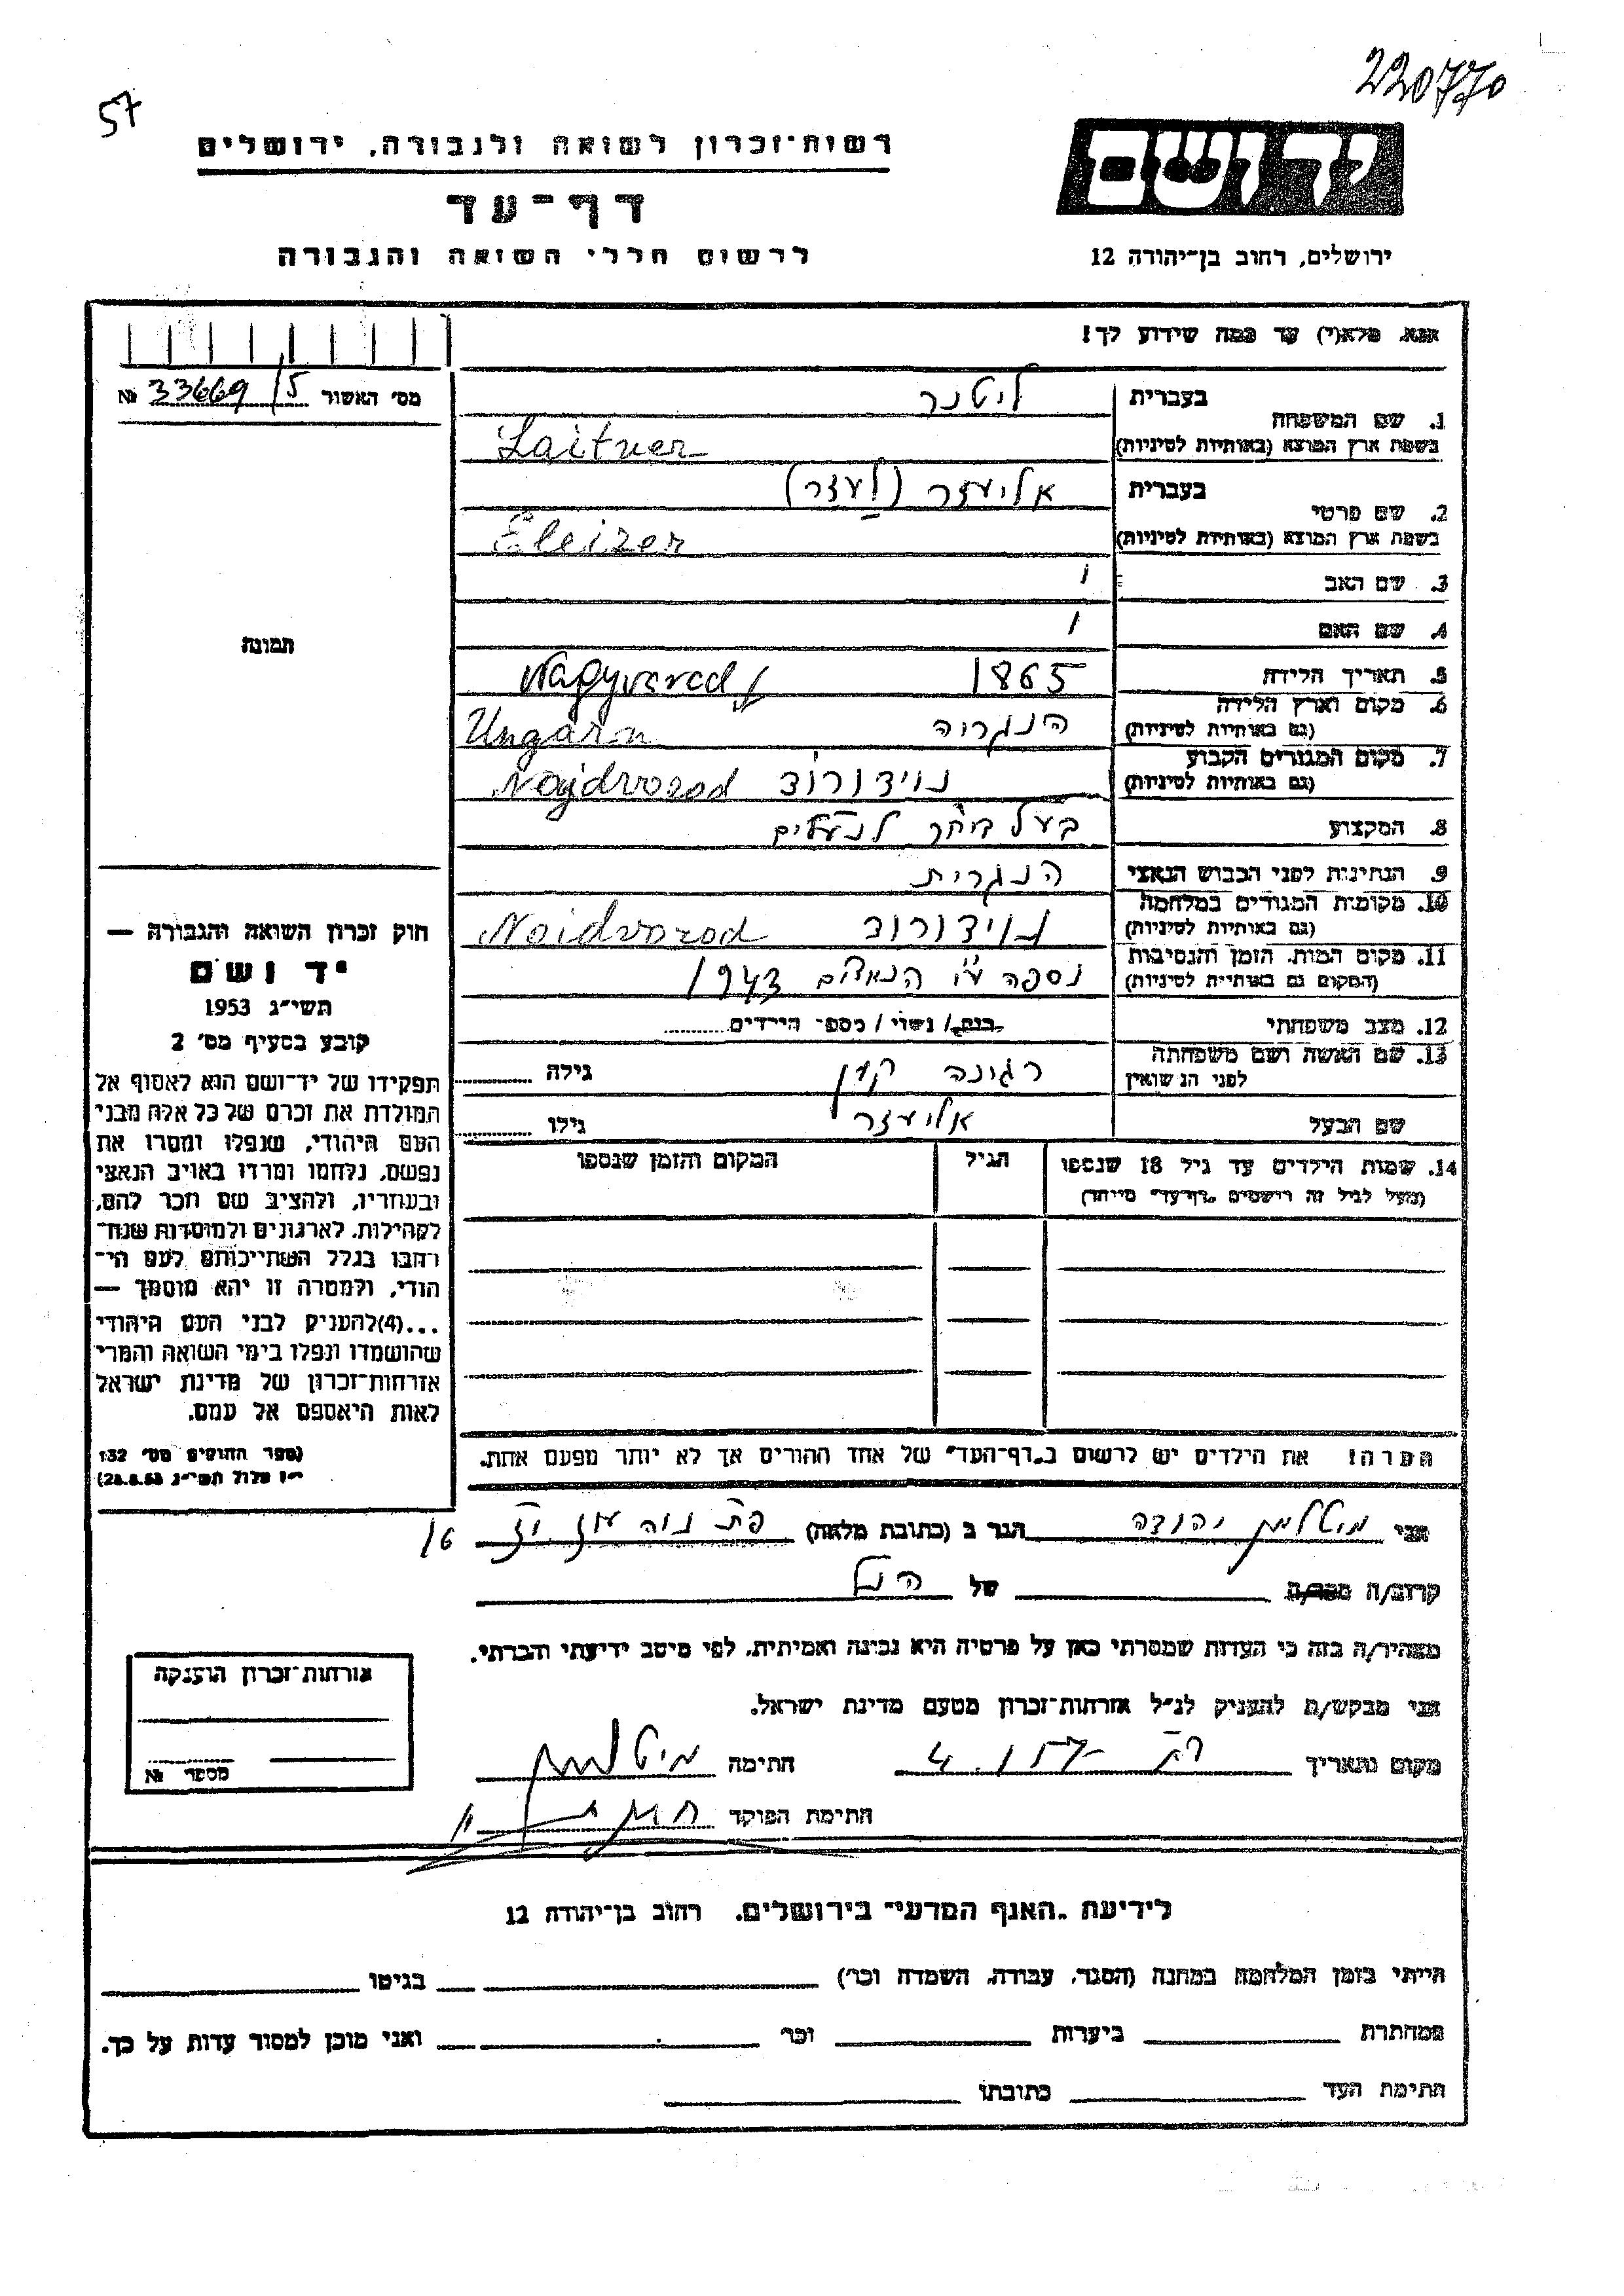 220770
57
רשות־זכרון לשואה ולגבורה, ירושלים
יד ושם
דף־עד
לרשום חללי השואה והגבורה
ירושלים, רחוב בן־יהודה 12
אנא, מלא(י) עד כמה שידוע לך!
מס׳ האשור 33669/5 №
תמונה
1. שם המשפחה
בעברית ליטנר
בשפת ארץ המוצא (באותיות לטיניות) Laitner
2. שם פרטי
בעברית אליעזר (לעזר)
בשפת ארץ המוצא (באותיות לטיניות) Eleizer
3. שם האב
4. שם האם
5. תאריך הלידה 1865 Nagyvarad
6. מקום וארץ הלידה (גם באותיות לטיניות) הנגריה Ungarn
7. מקום המגורים הקבוע (גם באותיות לטיניות) נוידורוד Nojdvorod
8. המקצוע בעל ביח״ר לנעלים
9. הנתינות לפני הכבוש הנאצי הנגרית
10. מקומות המגורים במלחמה (גם באותיות לטיניות) נוידורוד Noidvorod
11. מקום המות, הזמן והנסיבות (המקום גם באותיות לטיניות) נספה ע״י הנאצים 1943
12. מצב משפחתי רווק / נשוי / מספר הילדים
13. שם האשה ושם משפחתה לפני הנשואין רגינה קון גילה
שם הבעל אליעזר גילו
14. שמות הילדים עד גיל 18 שנספו (מעל לגיל זה רושמים „דף־עד״ מיוחד) הגיל המקום והזמן שנספו
הערה! את הילדים יש לרשום ב„דף־העד״ של אחד ההורים אך לא יותר מפעם אחת.
חוק זכרון השואה והגבורה —
יד ושם
תשי״ג 1953
קובע בסעיף מס׳ 2
תפקידו של יד־ושם הוא לאסוף אל
המולדת את זכרם של כל אלה מבני
העם היהודי, שנפלו ומסרו את
נפשם, נלחמו ומרדו באויב הנאצי
ובעוזריו, ולהציב שם וזכר להם,
לקהילות, לארגונים ולמוסדות שנח־
רבו בגלל השתייכותם לעם הי־
הודי, ולמטרה זו יהא מוסמך —
...(4) להעניק לבני העם היהודי
שהושמדו ונפלו בימי השואה והמרי
אזרחות־זכרון של מדינת ישראל
לאות היאספם אל עמם.
(ספר החוקים מס׳ 132
י״ז אלול תשי״ג 28.8.53)
אני מיטלמן יהודה הגר ב (כתובת מלאה) פת נוה עוז 16
קרוב/ה מכר/ה של הנ״ל
מצהיר/ה בזה כי העדות שמסרתי כאן על פרטיה היא נכונה ואמיתית, לפי מיטב ידיעתי והכרתי.
אני מבקש/ת להעניק לנ״ל אזרחות־זכרון מטעם מדינת ישראל.
מקום ותאריך חתימה מיטלמן
חתימת הפוקד
אזרחות־זכרון הוענקה
מספר №
לידיעת „האגף המדעי״ בירושלים, רחוב בן־יהודה 12
הייתי בזמן המלחמה במחנה (הסגר, עבודה, השמדה וכו׳) בגיטו
במחתרת ביערות וכו׳ ואני מוכן למסור עדות על כך.
חתימת העד כתובתו